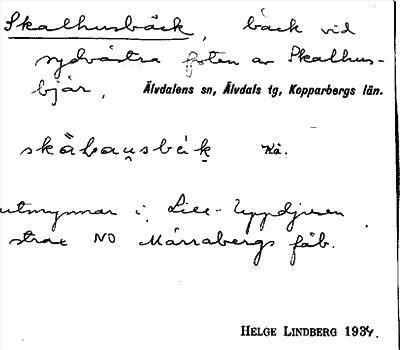 Skalhusbäck, bäck vid
sydvästra foten av Skalhus-
bjär, Älvdalens sn, Älvdals tg, Kopparbergs län.
utmynnar i Lill-Uppdjusen
strax NO Mårrabergs fäb.
HELGE LINDBERG 1934.